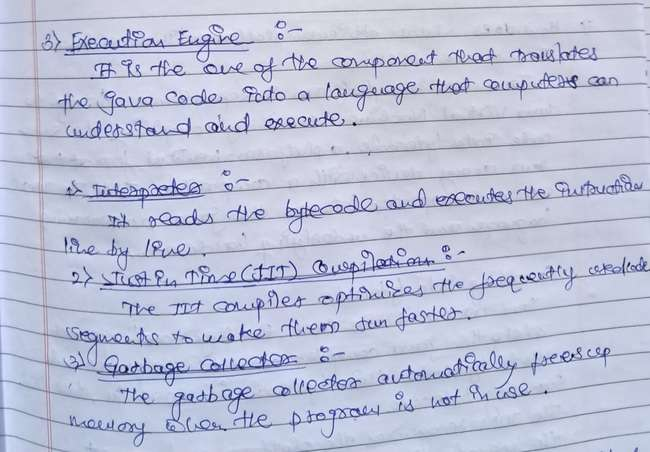 3) Execution Engine :-
It is the one of the component that translates
the Java code into a language that computers can
understand and execute.
1) Interpreter :-
It reads the bytecode and executes the instruction
line by line.
2) Just in Time (JIT) Compilation :-
The JIT compiler optimizes the frequently used code
segments to make them run faster.
3) Garbage collector :-
The garbage collector automatically frees up
memory when the program is not in use.